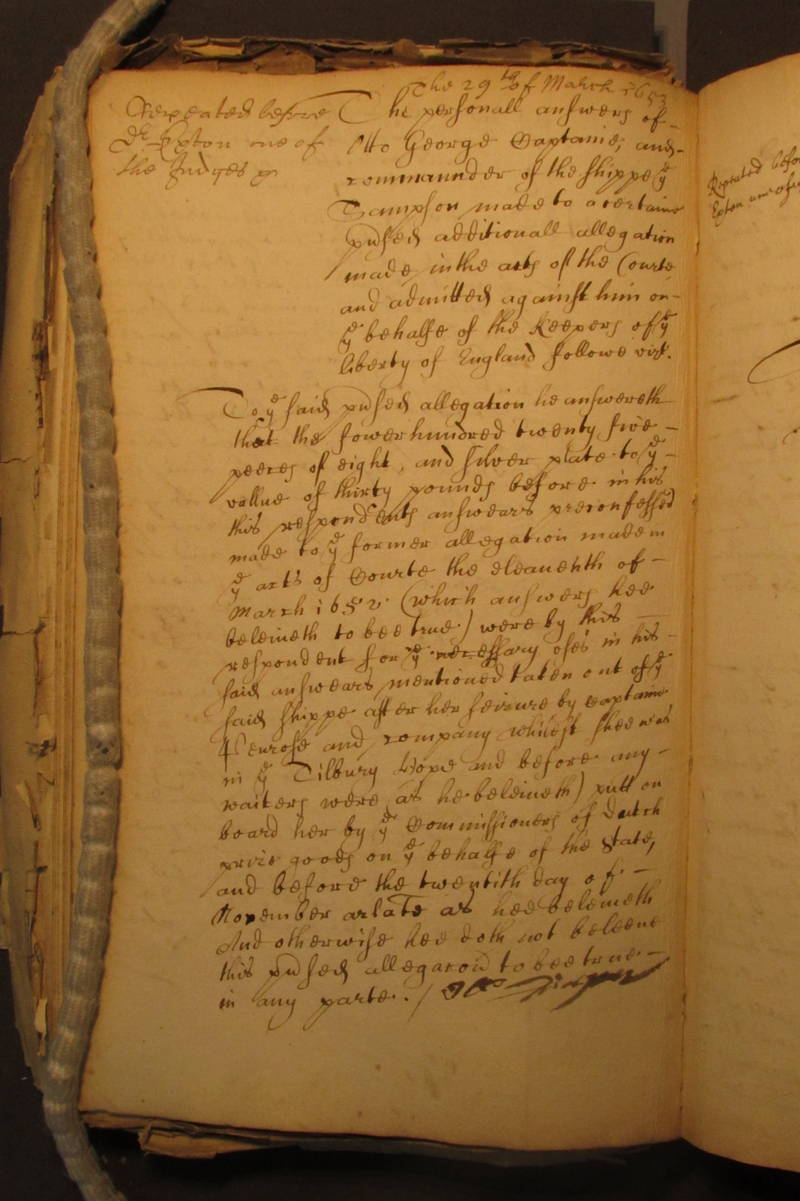 The 29th of March 1653
Repeated before
Dr. Exton one of
the Judges
The personall answers of
Otto George Captaine, and
commaunder of the shippe ye
Sampson made to a certaine
prtsed additionall allegation
made in the acts of the Courte
and admitted against him on
ye behalfe of the Keepers of ye
liberty of England followe vizt.
To ye said prtsed allegation he answereth
that the fower hundred twenty five
peeces of eight, and silver plate to ye
vallue of thirty pounds before in his
this respondents answears preconfessed
made to ye former allegation made in
ye acts of Courte the eleaventh of
March 1652 (which answers hee
beleiveth to bee true) were by this
respondent for ye necessary oses in his
said answears mentioned taken out of ye
said shippe after her seizure by Captaine
Penrose and company whilest shee was
in ye Tilbury Hope and before any
waiters were (as he beleiveth) putt on
board her by ye Commissioners of dutch
prize goods on ye behalfe of the State,
and before the twentith day of
November arlate as hee beleiveth
And otherwise hee doth not beleeve
this prtsed allegacon to bee true
in any parte. /